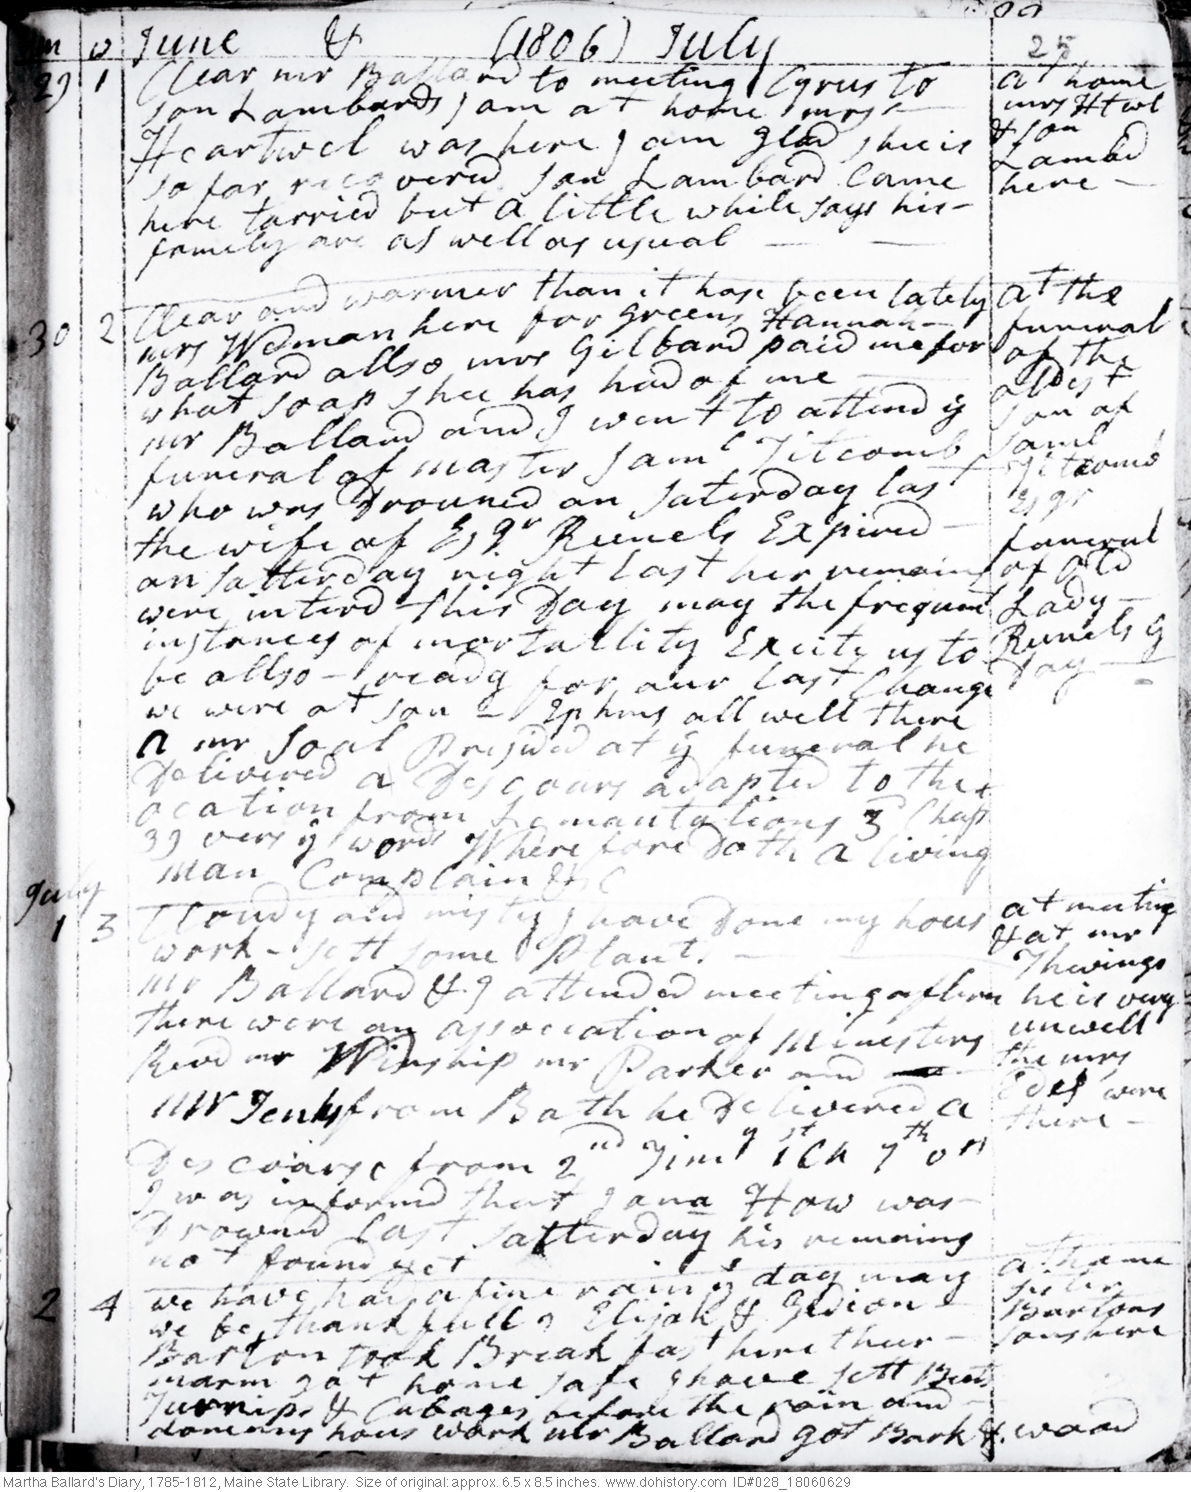 June & (1806) July
25
29 1 Clear mr Ballard to meeting Cyrus to
son Lambards I am at home mrs
Heartwel was here I am glad shee is
so far recovered. son Lambard Came
here tarried but a little while says his
family are as well as usual
at home
mrs Htwl
& son
Lambd
here
30 2 Clear and warmer than it has been lately
mrs Wdman here for greens Hannah
Ballard allso mrs Gilbard paid me for
what soap shee has had of me
mr Ballard and I went to attend ye
funeral of master Saml Titcomb
who was Drouned on Saterday last
the wife of Esqr Runels Expired
on Satterday night last her remains
were interd this Day may the frequent
instances of mortallity Excite us to
be allso ready for our last Change
we were at son Ephms all well there
mr Soal Presided at ye funeral he
Delivered a Descours adapted to the
ocation from Lemantations 3d Chapt
39 vers ye words Wherefore Doth a living
man Complain &c
at the
funeral
of the
oldest
son of
Saml
Titcomb
Esqr
funeral
of Old
Lady
Runels ys
Day
July
1 3 Cloudy and misty I have Done my hous
work - sett some Plant.
mr Ballard & I attended meeting aftern
there were an association of Ministers
Revd mr Winship mr Parker and
mr Jenks from Bath he Delivered a
Descoarse from 2nd Timy 1st Ch 7th vr
I was informd that Jona How was
Drownd last Satterday his remains
not found yet
at meeting
& at mr
Thwings
he is very
unwell
the mrs
Edes were
there
2 4 we have had a fine rain ys day may
we be thankfull Elijah & Gideon
Barton took Breakfast here their
marm got home safe I have sett Beets
Turnips & Cabages before the rain and
done my hous work mr Ballard got Bark & wood
at home
sister
Bartons
sons here
Martha Ballard's Diary, 1785-1812, Maine State Library. Size of original: approx. 6.5 x 8.5 inches. www.dohistory.com ID#028_18060629